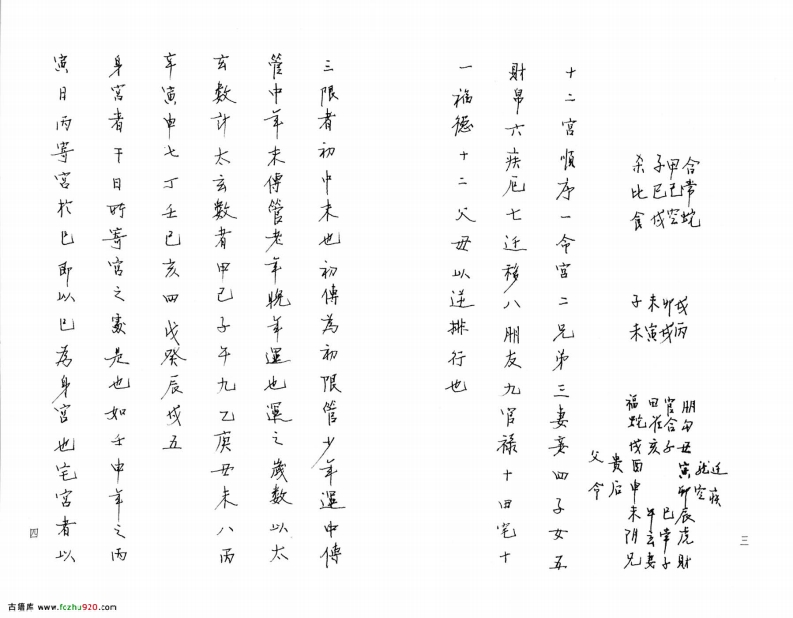 合常蛇
甲己空
子巳戌
杀比食
戌丙
卯戌
未寅
子未
朋勾丑寅卯辰虎財
龙空
迁疾
官合子
巳常子
田花亥
午玄妻
福蛇戌酉申未阴兄
貴后
父命
三
十二宮順序一命宮二兄弟三妻妾四子女五
財帛六疾厄七迁移八朋友九官禄十田宅十
一福德十二父母以逆排行也
三限者初中末也初傳為初限管少年運中傳
管中年末傳管老年晚年運也運之歲數以太
玄數計太玄數者甲己子午九乙庚丑未八丙
辛寅申七丁壬巳亥四戊癸辰戌五
身宮者干日所寄宮之處是也如壬申年之丙
寅日丙寄宮於巳即以巳為身宮也宅宮者以
四
古籍库 www.fczhu920.com